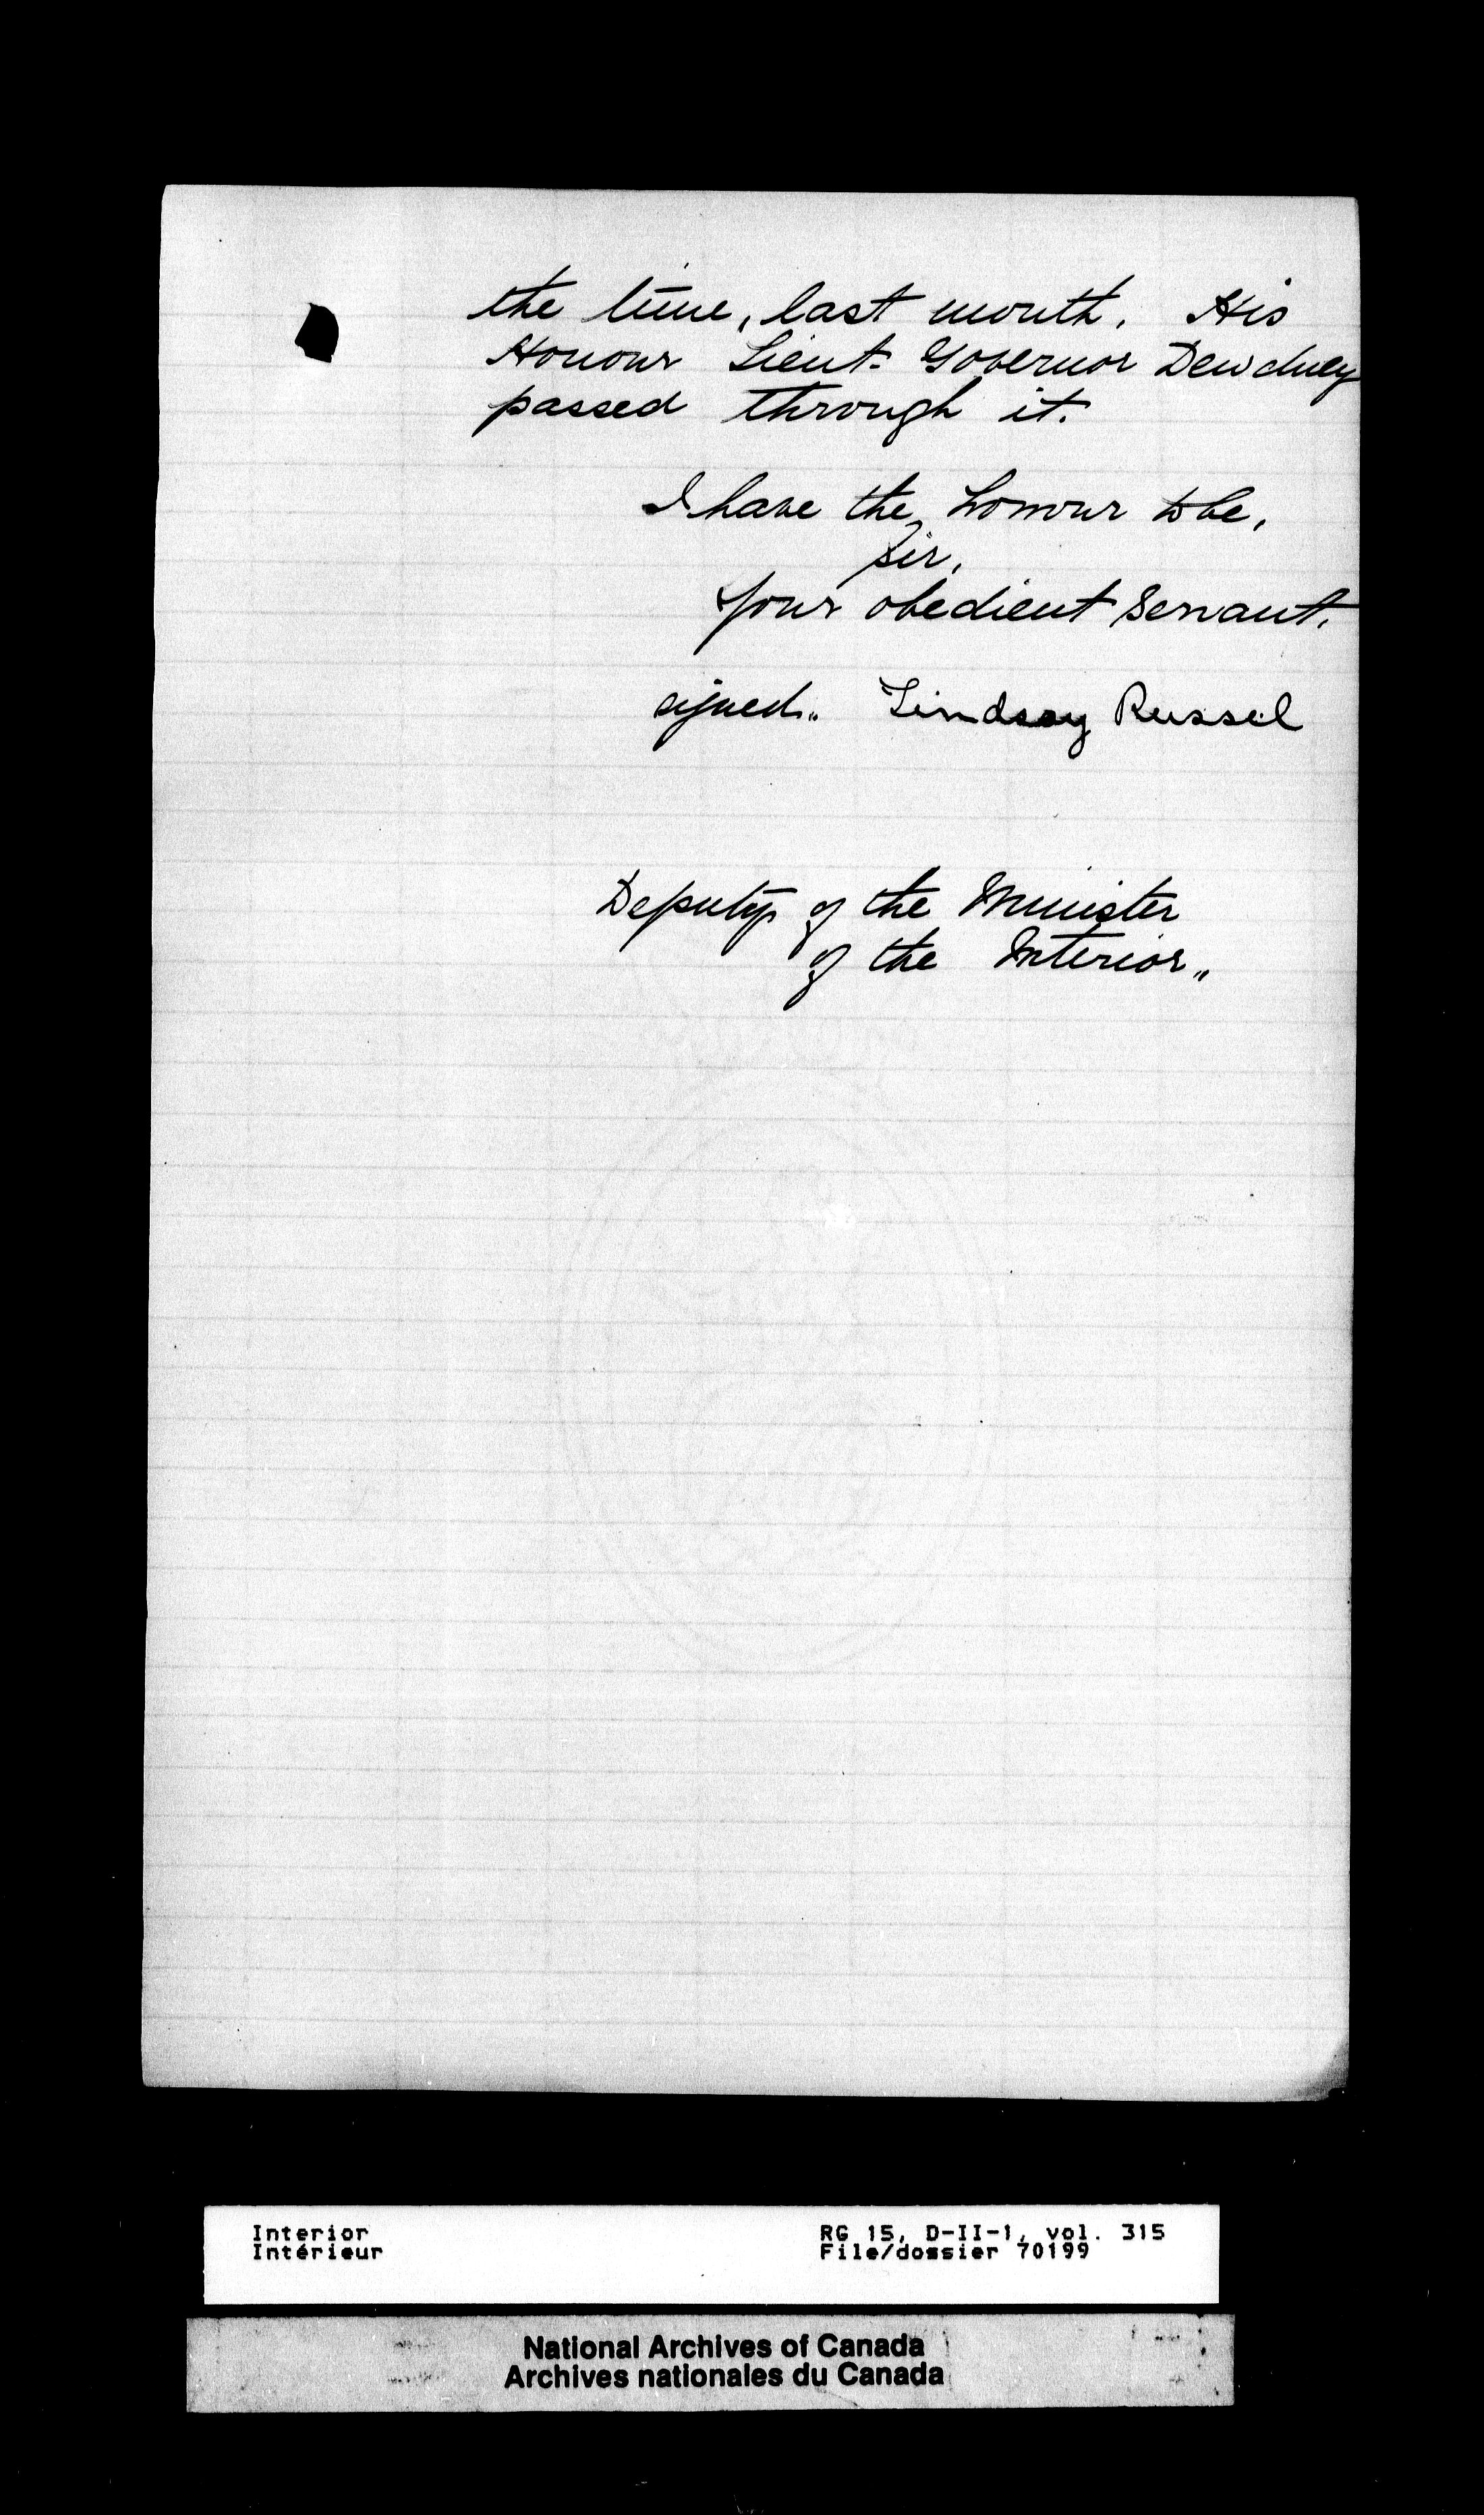 the time, last month. His
Honour Lieut. Governor Dewdney
passed through it.
I have the honour to be,
Sir,
Your obedient servant.
signed.. Lindsay Russel
Deputy of the Minister
of the Interior..
Interior
Intérieur
RG 15, D-II-1, vol. 315
File/dossier 70199
National Archives of Canada
Archives nationales du Canada